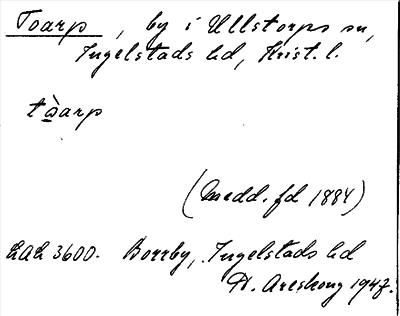 Toarp, by i Ullstorps sn,
Ingelstads hd, Krist. l.
tòarp
(Medd. fd 1884)
LAL 3600. Borrby, Ingelstads hd
H. Areskoug 1947.